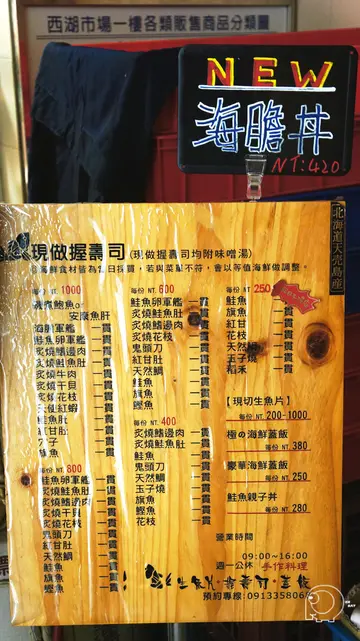 西湖市場一樓各類販售商品分類圖
NEW
海膽丼
NT:420
北海道天売島産
現做握壽司(現做握壽司均附味噌湯)
海鮮食材皆為當日採買，若與菜單不符，會以等值海鮮做調整。
每份 NT. 1000
磯煮鮑魚or
安康魚肝
海膽軍艦 一貫
鮭魚卵軍艦 一貫
炙燒鰭邊肉 一貫
炙燒鮭魚肚 一貫
炙燒牛肉 一貫
炙燒干貝 一貫
天使紅蝦 一貫
紅甘肚 一貫
穴子 一貫
旗魚 一貫
每份 NT. 800
鮭魚卵軍艦 一貫
炙燒鮭魚肚 一貫
炙燒鰭邊肉 一貫
炙燒干貝 一貫
炙燒花枝 一貫
鬼頭刀 一貫
紅甘肚 一貫
天然鯛 一貫
鮭魚 一貫
旗魚 一貫
鰹魚 一貫
每份 NT. 600
鮭魚卵軍艦 一貫
炙燒鮭魚肚 一貫
炙燒鰭邊肉 一貫
炙燒花枝 一貫
鬼頭刀 一貫
紅甘肚 一貫
天然鯛 一貫
鮭魚 一貫
旗魚 一貫
鰹魚 一貫
每份 NT. 400
炙燒鰭邊肉 一貫
炙燒鮭魚肚 一貫
鮭魚 一貫
鬼頭刀 一貫
天然鯛 一貫
玉子燒 一貫
旗魚 一貫
鰹魚 一貫
花枝 一貫
每份 NT. 250
鮭魚 一貫
旗魚 一貫
紅甘 一貫
花枝 一貫
天然鯛 一貫
玉子燒 一貫
稻禾 一貫
【現切生魚片】
每份 NT. 200-1000
極の海鮮蓋飯
每份 NT. 380
豪華海鮮蓋飯
每份 NT. 250
鮭魚親子丼
每份 NT. 280
營業時間
09:00~16:00
週一公休 手作料理
生魚片·壽司·蓋飯
預約專線:0913358068